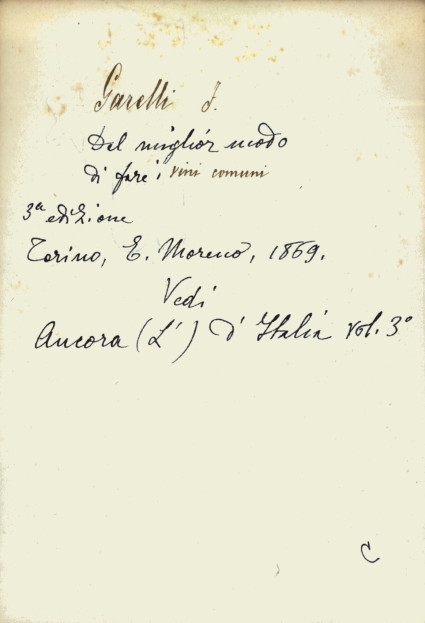 Garelli F.
Del miglior modo
di fare i vini comuni
3ª edizione
Torino, E. Moreno, 1869.
Vedi
Ancora (L') d'Italia vol. 3°
C